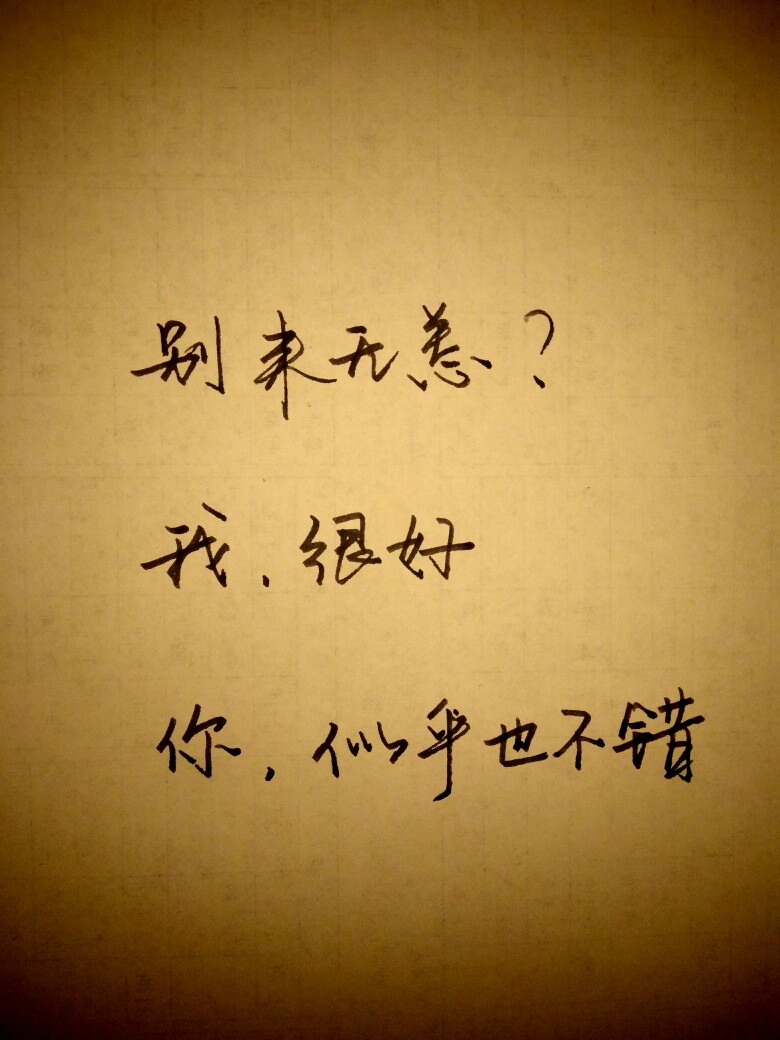 别来无恙？
我，很好
你，似乎也不错